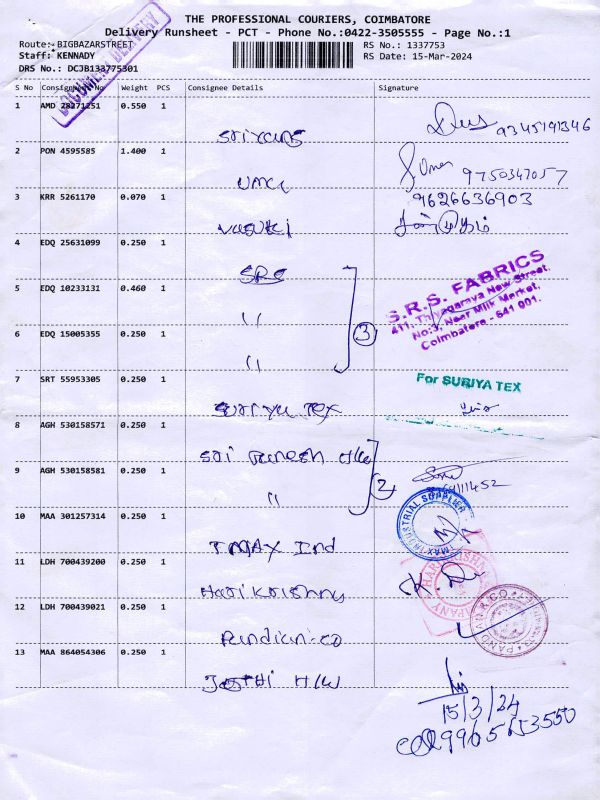 THE PROFESSIONAL COURIERS, COIMBATORE
Delivery Runsheet - PCT - Phone No.:0422-3505555 - Page No.:1
Route: BIGBAZARSTREET
RS No.: 1337753
Staff: KENNADY
RS Date: 15-Mar-2024
DRS No.: DCJB133775301
DOCUMENT DELIVERY
S No Consignment No Weight PCS Consignee Details Signature
1 AMD 28271251 0.550 1
9345191346
2 PON 4595585 1.400 1
Uma
9750347057
3 KRR 5261170 0.070 1
9626636903
Vasuki
4 EDQ 25631099 0.250 1
SRS
5 EDQ 10233131 0.460 1
"
3
S.R.S. FABRICS
411, Thiyagaraya New Street,
No:3, Near Milk Market,
Coimbatore - 641 001.
6 EDQ 15005355 0.250 1
"
7 SRT 55953305 0.250 1
Suriya Tex
For SURIYA TEX
8 AGH 530158571 0.250 1
Sri Ganesh H/W
9 AGH 530158581 0.250 1
"
2
10 MAA 301257314 0.250 1
TMAX Ind
TMAX INDUSTRIAL SUPPLIER
11 LDH 700439200 0.250 1
Hari Krishna
HARI KRISHNA COMPANY
12 LDH 700439021 0.250 1
Pandian.co
PANDIAN R.CO
13 MAA 864054306 0.250 1
Jothi H/W
15/3/24